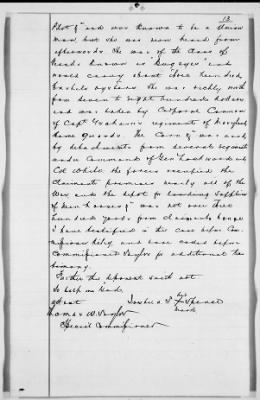 13
Pilot &c and was known to be a Union
man, but she was never heard from
afterwards She was of the class of
boats known as "bugeyes" and
would carry about three hundred
bushels oysters She was richly worth
from seven to eight hundred dollars
and was taken by Corporal Cannon
of Capt Graham's regiment of Maryland
Home Guards. The Corn &c was used
by detachments from several regiments
under Command of Gen'l Lockwood and
Col White the forces occupied the
claimants premises nearly all of the
War and the depot for landing supplies
of Gen'l
&c was not over three
hundred yards from claimants house
I have testified in the case before Com-
missioner
and been called before
Commissioner Taylor for additional tes-
timony.
Further the deponent saith not
So help me God.
Attest
Joshua S his Spence
mark
Thomas W. Taylor
Special Commissioner